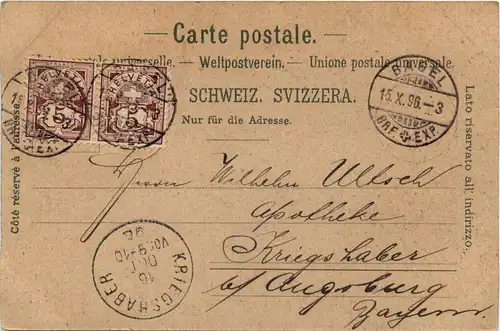 Carte postale.
Union postale universelle. — Weltpostverein. — Unione postale universale.
SCHWEIZ. SVIZZERA.
Nur für die Adresse.
Côté réservé à l'adresse.
Lato riservato all'indirizzo.
HELVETIA
5
HELVETIA
5
BASEL
15.X.96.–3
BRF. EXP.
Herrn Wilhelm Ultsch
Apotheke
Kriegshaber
b/ Augsburg
Bayern.
KRIEGSHABER
16
OCT
VOR. 9-10
96